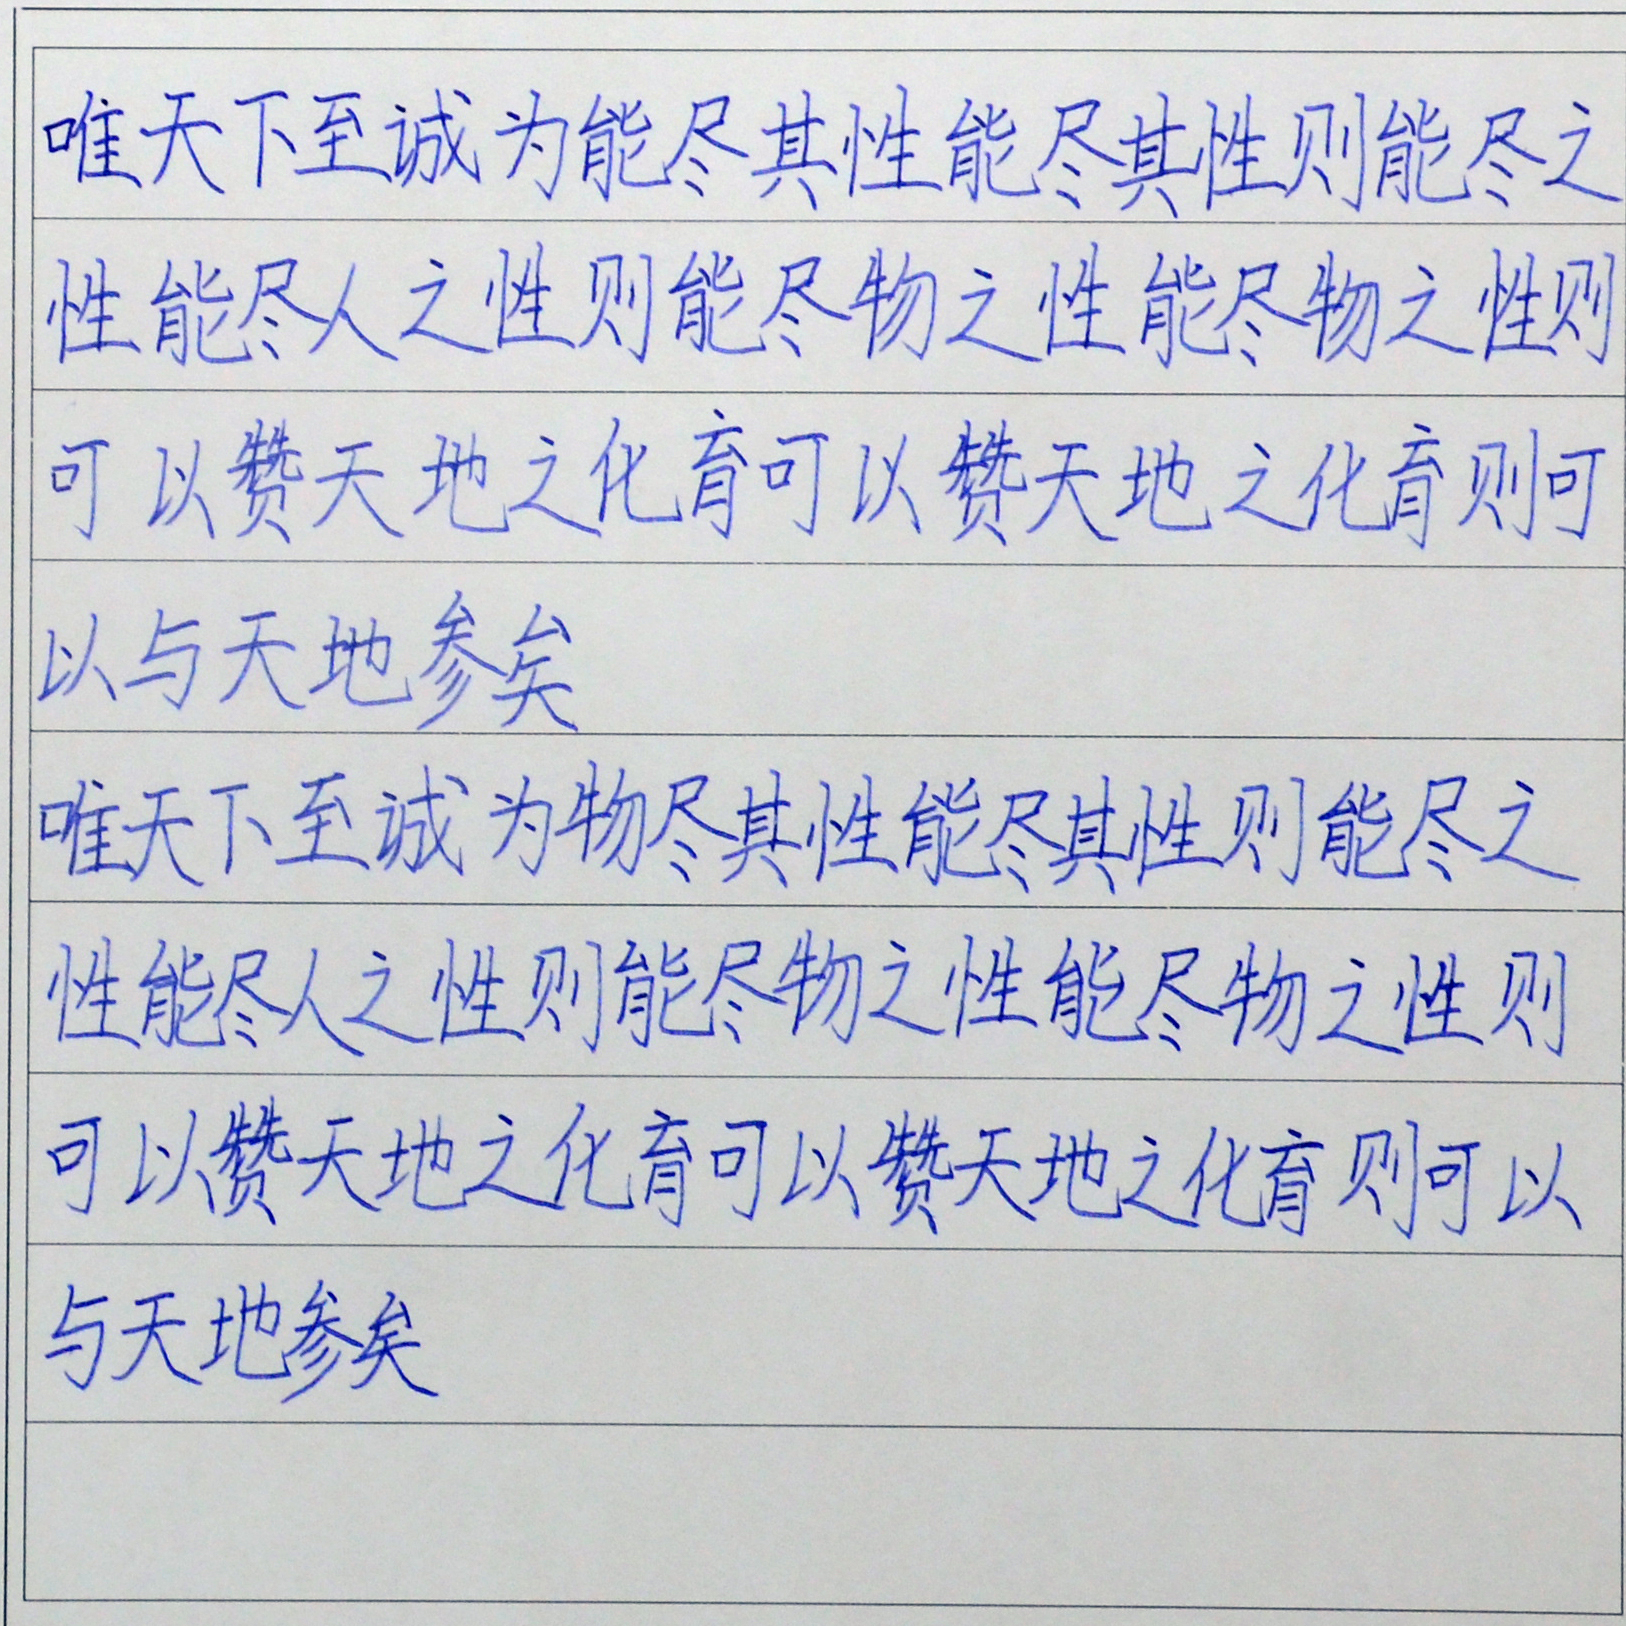 唯天下至诚为能尽其性能尽其性则能尽之
性能尽人之性则能尽物之性能尽物之性则
可以赞天地之化育可以赞天地之化育则可
以与天地参矣
唯天下至诚为物尽其性能尽其性则能尽之
性能尽人之性则能尽物之性能尽物之性则
可以赞天地之化育可以赞天地之化育则可以
与天地参矣